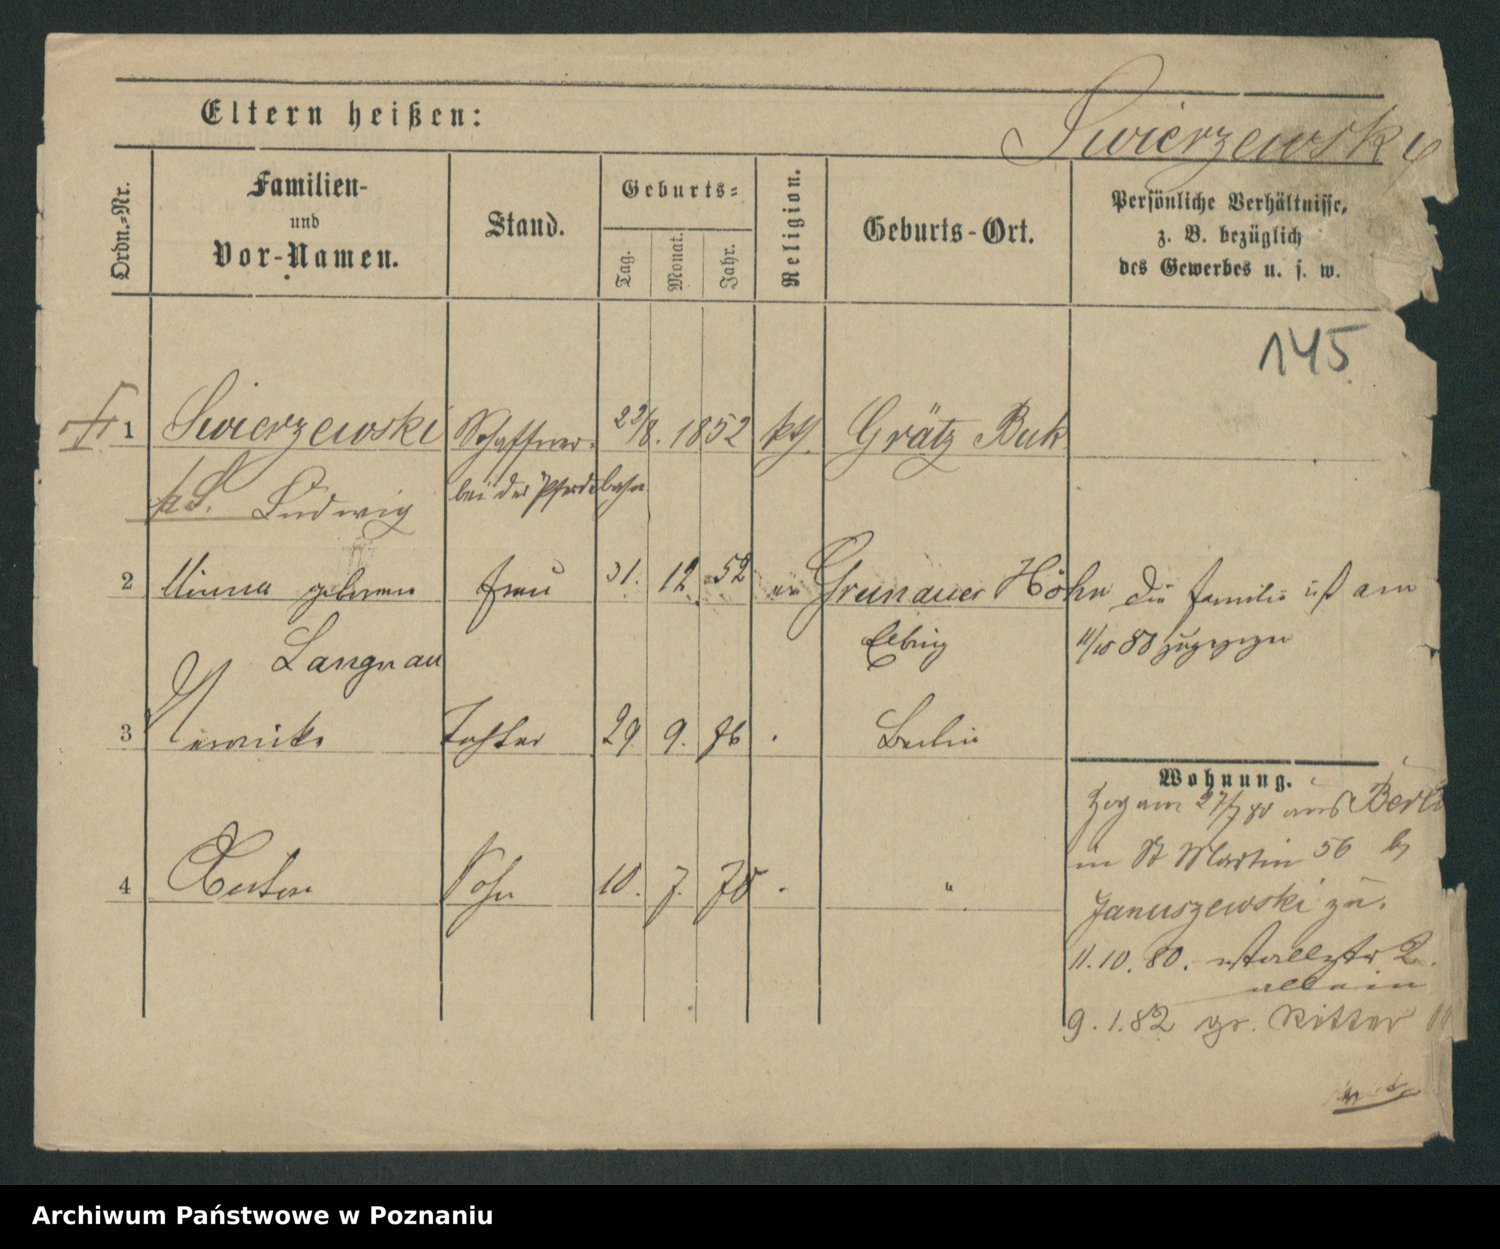 Eltern heißen:
Swierzewski
Ordn.-Nr.
Familien-
und
Vor-Namen.
Stand.
Geburts-
Tag.
Monat.
Jahr.
Religion.
Geburts-Ort.
Persönliche Verhältnisse,
z. B. bezüglich
des Gewerbes u. s. w.
145
1 Swierzewski Schaffner 22/8. 1852 kth. Grätz Buk
Ludwig bei der Pferdebahn
2 Minna geborene Frau 31. 12. 52 ev Grunauer Höhe Die Familie ist am
Langnau Elbing 11/10 80 zugezogen
3 Tochter 29. 9. 76 Berlin
Wohnung.
Zog am 27/7 80 aus Berlin
in St Martin 56 b
4 Sohn 10. 7. 78 "
Januszewski zu.
11.10.80. 2.
allein
9.1.82 gr. Ritter
Archiwum Państwowe w Poznaniu